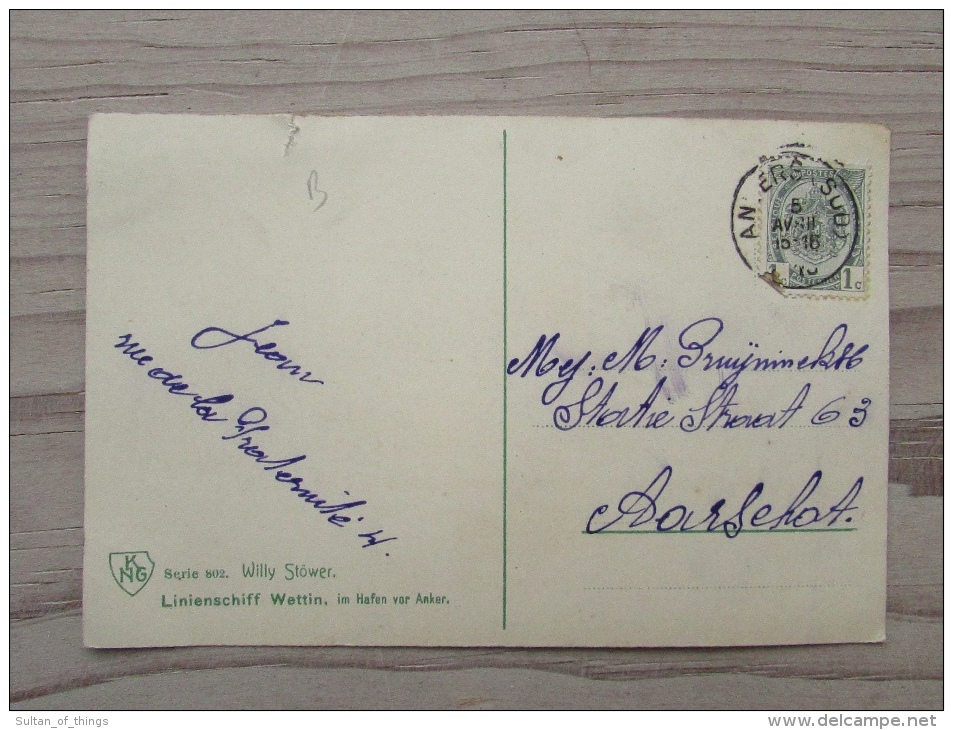 B
ANVERS (SUD)
5
AVRIL
15-16
POSTES
1c 1c
Jean
rue de la Fraternité 4.
Mej: M: Bruijninckx
Statie Straat 63
Aarschot.
KNG
Serie 802. Willy Stöwer.
Linienschiff Wettin, im Hafen vor Anker.
Sultan_of_things
www.delcampe.net